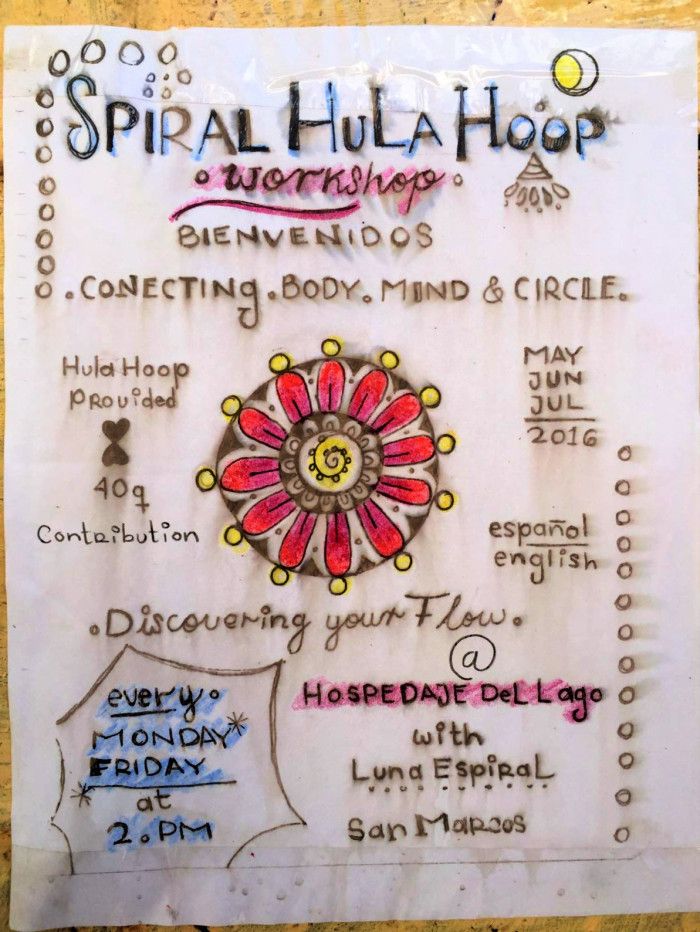 SPIRAL HULA HOOP
workshop
BIENVENIDOS
.CONECTING.BODY.MIND & CIRCLE.
Hula Hoop
Provided
40q
Contribution
MAY
JUN
JUL
2016
español
english
.Discovering your Flow.
@
every.
MONDAY*
FRIDAY
*
at
2.PM
HOSPEDAJE DeL Lago
with
Luna EspiraL
San Marcos